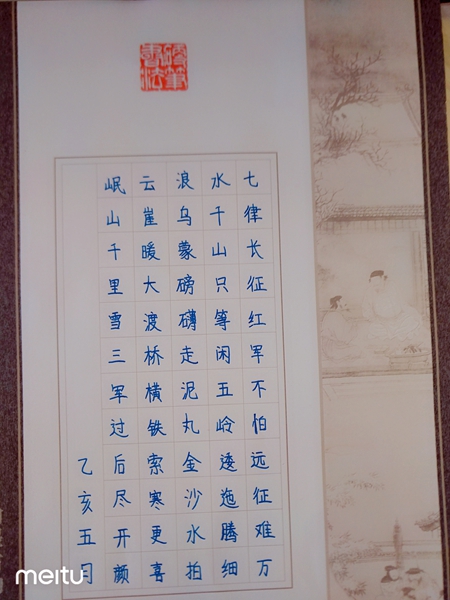 硬筆書法
七律长征红军不怕远征难万
水千山只等闲五岭逶迤腾细
浪乌蒙磅礴走泥丸金沙水拍
云崖暖大渡桥横铁索寒更喜
岷山千里雪三军过后尽开颜
乙亥五月
meitu